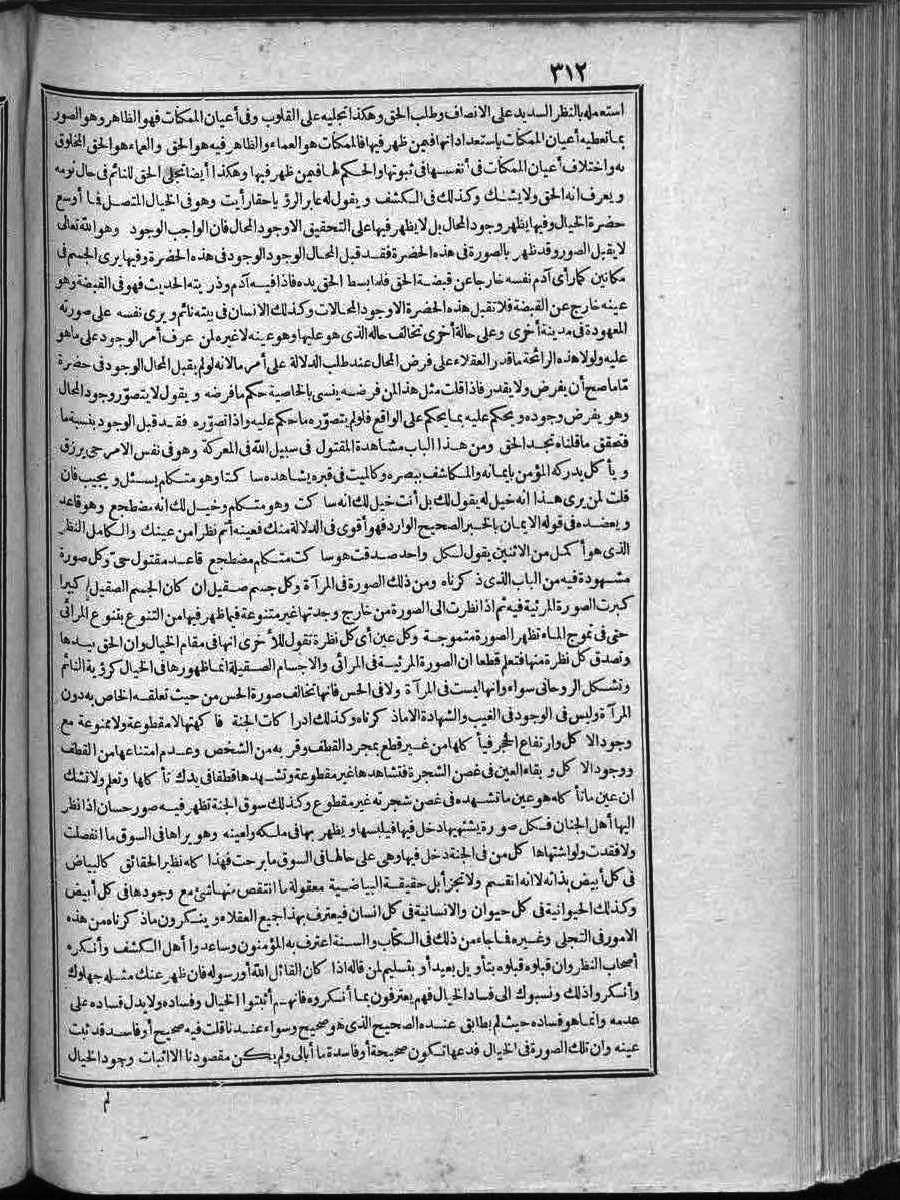 ٣١٢
استعمله بالنظر السديد على الانصاف وطلب الحق وهكذا تجليه على القلوب وفى أعيان الممكنات فهو الظاهر وهو الصور
بما تعطيه أعيان الممكنات باستعداداتها فيمن ظهر فيها فالممكنات هو العماء والظاهر فيه هو الحق والعماء هو الحق المخلوق
به واختلاف أعيان الممكنات فى أنفسها فى ثبوتها والحكم لها فيمن ظهر فيها وهكذا أيضا تجلى الحق للنائم فى حال نومه
ويعرف انه الحق ولا يشك وكذلك فى الكشف ويقول له عابر الرؤيا حقا رأيت وهو فى الخيال المتصل فما أوسع
حضرة الخيال وفيها يظهر وجود المحال بل لا يظهر فيها على التحقيق الا وجود المحال فان الواجب الوجود وهو الله تعالى
لا يقبل الصور وقد ظهر بالصورة فى هذه الحضرة فقد قبل المحال الوجود الوجود فى هذه الحضرة وفيها يرى الجسم فى
مكانين كما رأى آدم نفسه خارجا عن قبضة الحق فلما بسط الحق يده فاذا فيه آدم وذريته الحديث فهو فى القبضة وهو
عينه خارج عن القبضة فلا تقبل هذه الحضرة الا وجود المحالات وكذلك الانسان فى بيته نائم ويرى نفسه على صورته
المعهودة فى مدينة أخرى وعلى حالة أخرى تخالف حاله الذى هو عليها وهو عينه لا غيره لمن عرف أمر الوجود على ما هو
عليه ولولا هذه الرائحة ما قدر العقلاء على فرض المحال عند طلب الدلالة على أمر ما لانه لو لم يقبل المحال الوجود فى حضرة
مّا ما صح أن يفرض ولا يقدر فاذا قلت مثل هذا لمن فرضه ينسى بالخاصية حكم ما فرضه ويقول لا يتصوّر وجود المحال
وهو يفرض وجوده ويحكم عليه بما يحكم على الواقع فلو لم يتصوّره ما حكم عليه واذا تصوّره فقد قبل الوجود بنسبة ما
فتحقق ما قلناه تجد الحق ومن هذا الباب مشاهدة المقتول فى سبيل الله فى المعركة وهو فى نفس الامر حى يرزق
ويأكل يدركه المؤمن بايمانه والمكاشف ببصره وكالميت فى قبره يشاهده ساكتا وهو متكلم يسئل ويجيب فان
قلت لمن يرى هذا انه خيل له يقول لك بل أنت خيل لك انه ساكت وهو متكلم وخيل لك انه مضطجع وهو قاعد
ويعضده فى قوله الايمان بالخبر الصحيح الوارد فهو أقوى فى الدلالة منك فعينه أتم نظرا من عينك والكامل النظر
الذى هو أكمل من الاثنين يقول لكل واحد صدقت هو ساكت متكلم مضطجع قاعد مقتول حىّ وكل صورة
مشهودة فيه من الباب الذى ذكرناه ومن ذلك الصورة فى المرآة وكل جسم صقيل ان كان الجسم الصقيل كبيرا
كبرت الصورة المرئية فيه ثم اذا نظرت الى الصورة من خارج وجدتها غير متنوعة فيما ظهر فيها من التنوع بتنوع المرائى
حتى فى تموج الماء تظهر الصورة متموجة وكل عين أى كل نظرة تقول للأخرى انها فى مقام الخيال وان الحق بيدها
وتصدق كل نظرة منها فتعلم قطعا ان الصورة المرئية فى المرائى والاجسام الصقيلة انما ظهورها فى الخيال كرؤية النائم
وتشكل الروحانى سواء وانها ليست فى المرآة ولا فى الحس فانها تخالف صورة الحس من حيث تعلقه الخاص به دون
المرآة وليس فى الوجود فى الغيب والشهادة الا ماذكرناه وكذلك ادراكات الجنة فاكهتها لا مقطوعة ولا ممنوعة مع
وجود الاكل وارتفاع الحجر فيأكلها من غير قطع بمجرد القطف وقربه من الشخص وعدم امتناعها من القطف
ووجود الاكل وبقاء العين فى غصن الشجرة فتشاهدها غير مقطوعة وتشهدها قطفا فى يدك تأكلها وتعلم ولا تشك
ان عين ما تأكله هو عين ما تشهده فى غصن شجرته غير مقطوع وكذلك سوق الجنة تظهر فيه صور حسان اذا نظر
اليها أهل الجنان فكل صورة يشتهيها دخل فيها فيلبسها ويظهر بها فى ملكه ولعينه وهو يراها فى السوق ما انفصلت
ولا فقدت ولو اشتهاها كل من فى الجنة دخل فيها وهى على حالها فى السوق ما برحت فهذا كله نظير الحقائق كالبياض
فى كل أبيض بذاته لا انه انقسم ولا تجزأ بل حقيقة البياضية معقولة ما انتقص منها شئ مع وجودها فى كل أبيض
وكذلك الحيوانية فى كل حيوان والانسانية فى كل انسان فيعترف بهذا جميع العقلاء وينكرون ماذكرناه من هذه
الامور فى التجلى وغيره فما جاء من ذلك فى الكتاب والسنة اعترف به المؤمنون وساعدوا أهل الكشف وأنكره
أصحاب النظر وان قبلوه قبلوه بتأويل بعيد أو بتسليم لمن قاله اذا كان القائل الله أو رسوله فان ظهر عنك مثله جهلوك
وأنكروا ذلك ونسبوك الى فساد الخيال فهم يعترفون بما أنكروه فانهم أثبتوا الخيال وفساده ولا يدل فساده على
عدمه وانما هو فساده حيث لم يطابق عنده الصحيح الذى هو صحيح وسواء عندنا قلت فيه صحيح أو فاسد قد ثبت
عينه وان تلك الصورة فى الخيال فدعها تكون صحيحة أو فاسدة ما أبالى ولم يكن مقصودنا الا اثبات وجود الخيال
لم